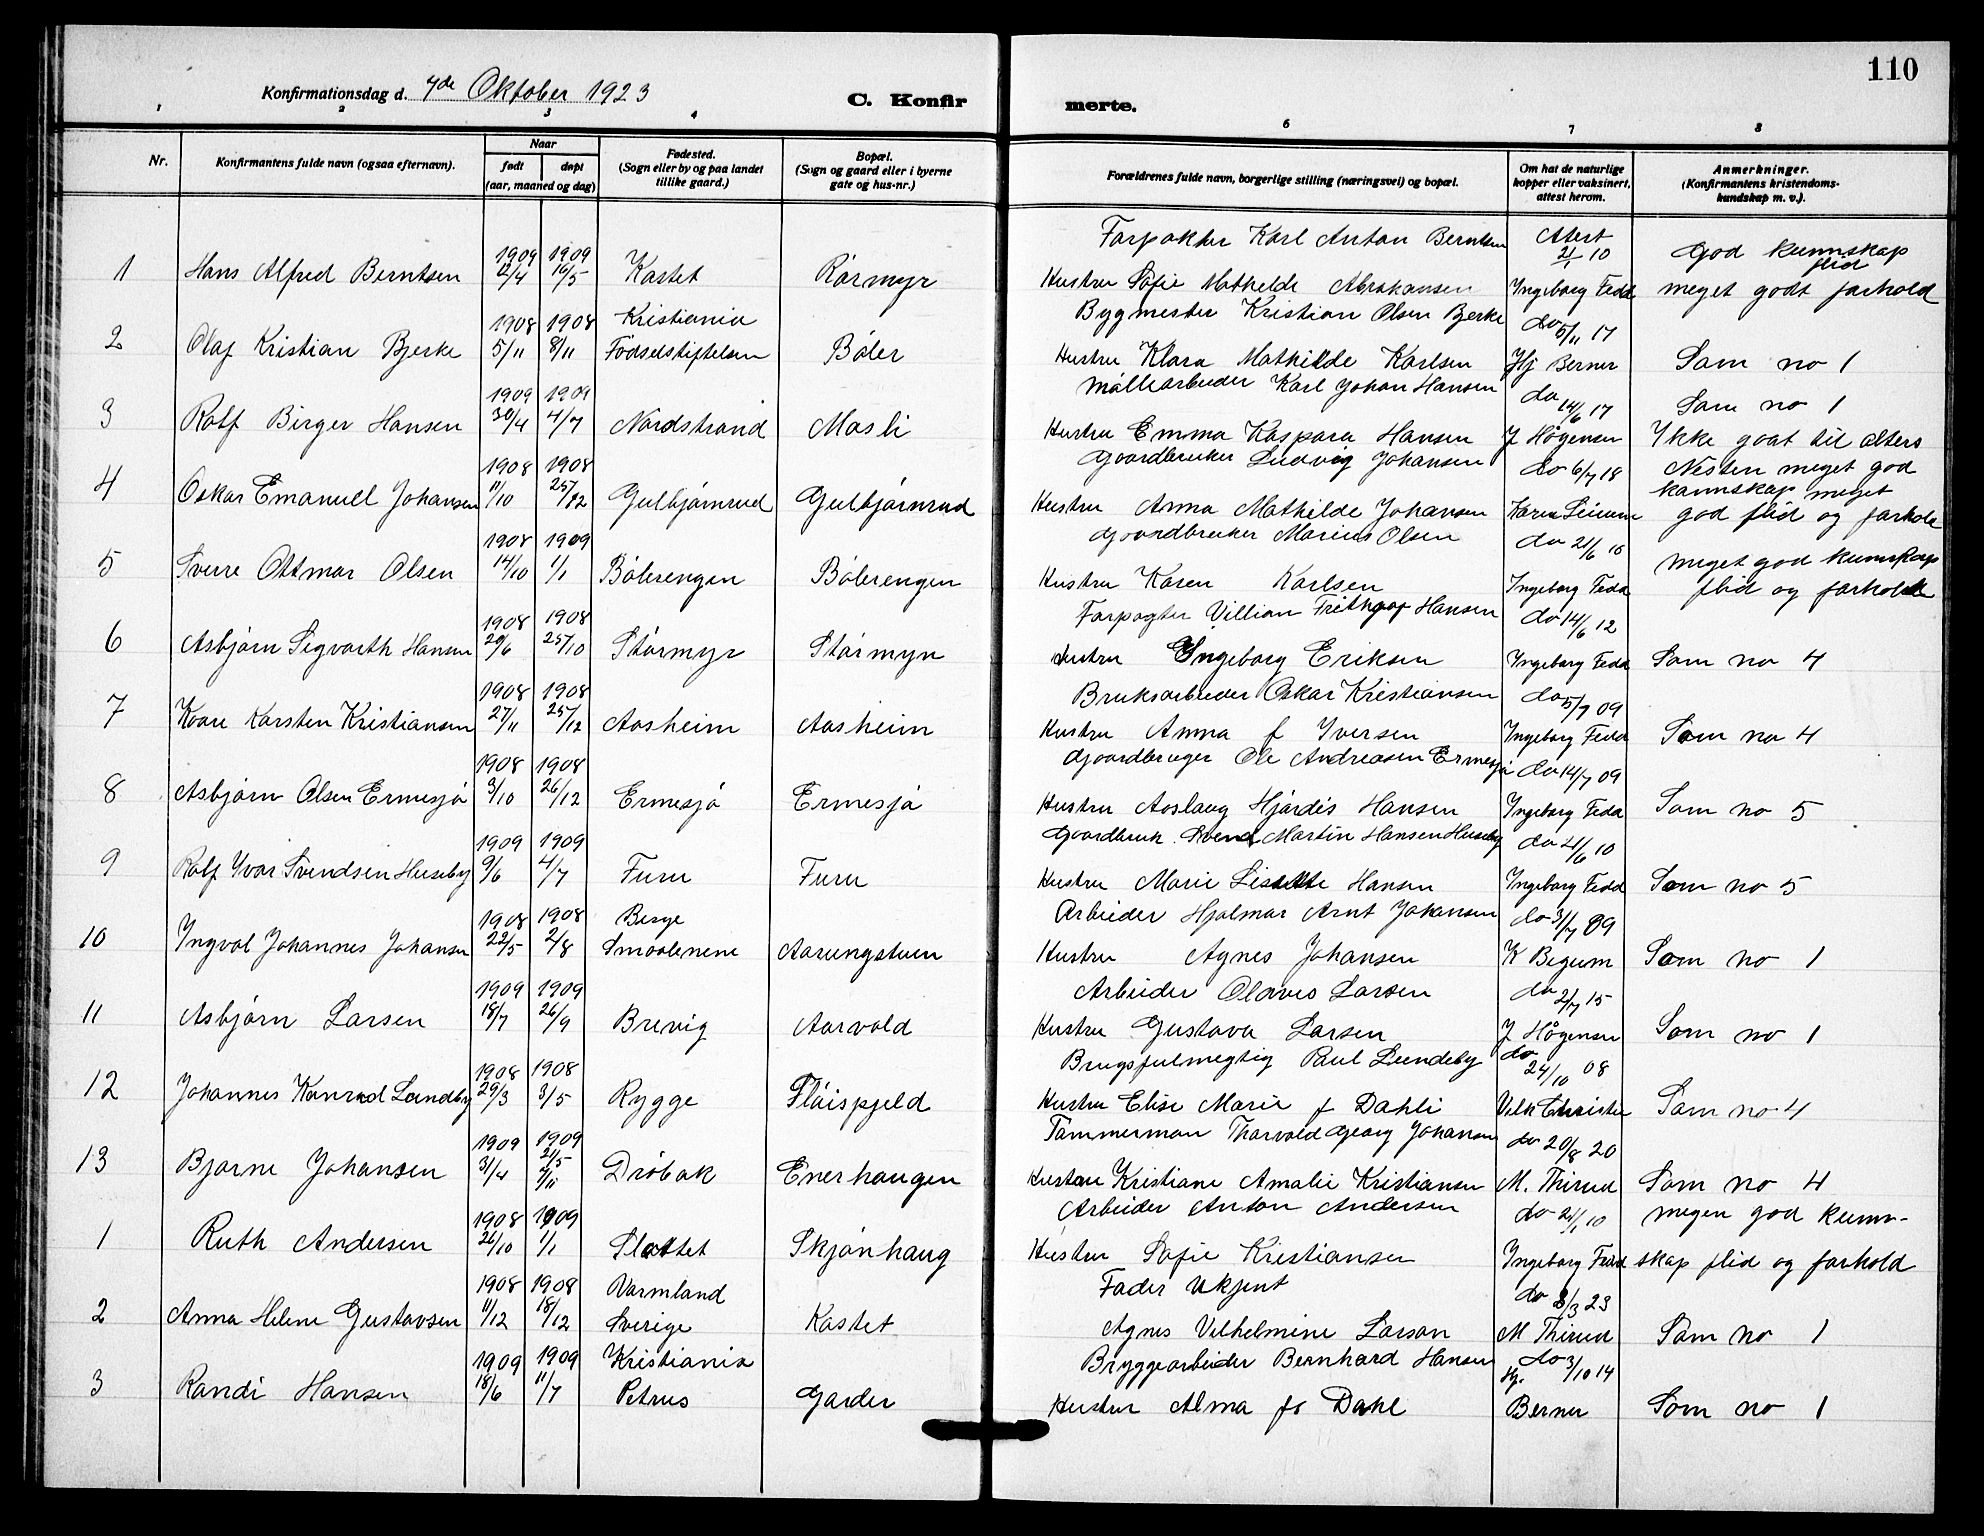 110
Konfirmationsdag d. 7de Oktober 1923
C. Konfir
merte.
1 2 3 4 6 7 8
Nr.
Konfirmantens fulde navn (ogsaa efternavn).
Naar
født døpt
(aar, maaned og dag)
Fødested.
(Sogn eller by og paa landet
tillike gaard.)
Bopæl.
(Sogn og gaard eller i byerne
gate og hus-nr.)
Forældrenes fulde navn, borgerlige stilling (næringsvei) og bopæl.
Om hat de naturlige
kopper eller vaksinert,
attest herom.
Anmerkninger.
(Konfirmantens kristendoms-
kundskap m. v.).
1909 1909 Forpakter Karl Anton Berntsen Atest 2/1 10 God kunnskap flid
1 Hans Alfred Berntsen 12/4 16/5 Kastet Rörmyr Hustru Sofie Mathilde Abrahamsen Ingeborg Fedd meget godt forhold
1908 1908 Kristiania Bygmester Kristian Olsen Bjerke do 5/11 17
2 Olaf Kristian Bjerke 5/11 8/11 Födselstiftelsen Böler Hustru Klara Mathilde Karlsen Hj Berner Som no 1
1909 1909 Mölliarbeider Karl Johan Hansen do 14/6 17 Som no 1
3 Rolf Birger Hansen 30/4 4/7 Nordstrand Mosli Hustru Emma Kaspara Hansen J Högensen Ykke goat til alters
1908 1908 Gaardbruker Ludvig Johansen do 6/7 18 Nesten meget god kunnskap meget
4 Oskar Emanuell Johansen 11/10 25/12 Gulbjörnrud Gulbjörnrud Hustru Anna Mathilde Johansen Karen god flid og forhold
1908 1909 Gaardbruker Marius Olsen do 21/6 10 meget god kunnskap
5 Sverre Ottmar Olsen 14/10 1/1 Bölerengen Bölerengen Hustru Karen Karlsen Ingeborg Fedd flid og forhold
1908 1908 Forpagter Villian Frithjof Hansen do 14/6 12
6 Asbjörn Sigvarth Hansen 29/6 25/10 Störmyr Störmyr Hustru Yngeborg Eriksen Ingeborg Fedd Som no 4
1908 1908 Bruksarbeider Oskar Kristiansen do 5/7 09
7 Kaare Karsten Kristiansen 27/11 25/12 Aasheim Aasheim Hustru Anna f Iversen Ingeborg Fedd Som no 4
1908 1908 Gaardbruger Ole Andreasen Ermesjö do 14/7 09
8 Asbjörn Olsen Ermesjö 3/10 26/12 Ermesjö Ermesjö Hustru Aaslaug Hjördis Hansen Ingeborg Fedd Som no 5
1909 1909 Gaardbruk. Svend Martin Hansen Huseby do 21/6 10
9 Rolf Yvar Svendsen Huseby 9/6 4/7 Furu Furu Hustru Marie Lisette Hansen Ingeborg Fedd Som no 5
1908 1908 Berge Arbeider Hjalmar Arnt Johansen do 3/7 09
10 Ingval Johannes Johansen 22/5 2/8 Smaalenene Aarungstuen Hustru Agnes Johansen K Begum Som no 1
1909 1909 Arbeider Olaves Larsen do 2/7 15
11 Asbjörn Larsen 18/7 26/9 Brevig Aarvold Hustru Gustava Larsen J Högensen Som no 1
1908 1908 Brugsfulmegtig Paul Lundeby do 24/10 08
12 Johannes Konrad Lundby 29/3 3/5 Rygge Flöispjeld Hustru Elise Marie f Dahli Som no 4
1909 1909 Tömmerman Thorvald Georg Johansen do 20/8 20
13 Bjarne Johansen 31/4 21/5 2/11 Dröbak Enerhaugen Hustru Kristiane Amalie Kristiansen M. Thirud Som no 4
1908 1909 Arbeider Anton Andersen do 21/1 10 megen god kunn-
1 Ruth Andersen 26/10 1/1 Slottet Skjönhaug Hustru Sofie Kristiansen Ingeborg Fedd skap flid og forhold
1908 1908 Varmland Fader ukjent do 8/3 23
2 Anna Helene Gustavsen 11/12 18/12 Sverige Kastet Agnes Vilhelmine Larson M Thirud Som no 1
1909 1909 Kristiania Bryggearbeider Bernhard Hansen do 3/10 14
3 Randi Hansen 18/6 11/7 Petrus Garder Hustru Alma fö Dahl Hj. Berner Som no 1